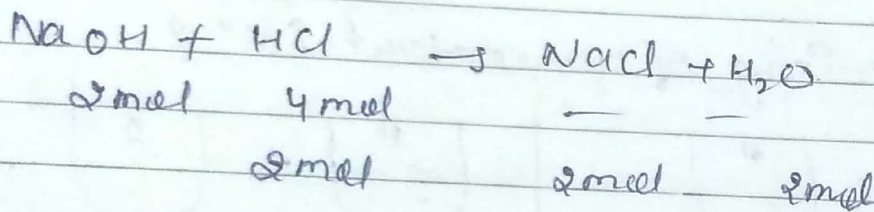 NaOH + HCl → NaCl + H₂O
2mol 4mol — —
2mol 2mol 2mol